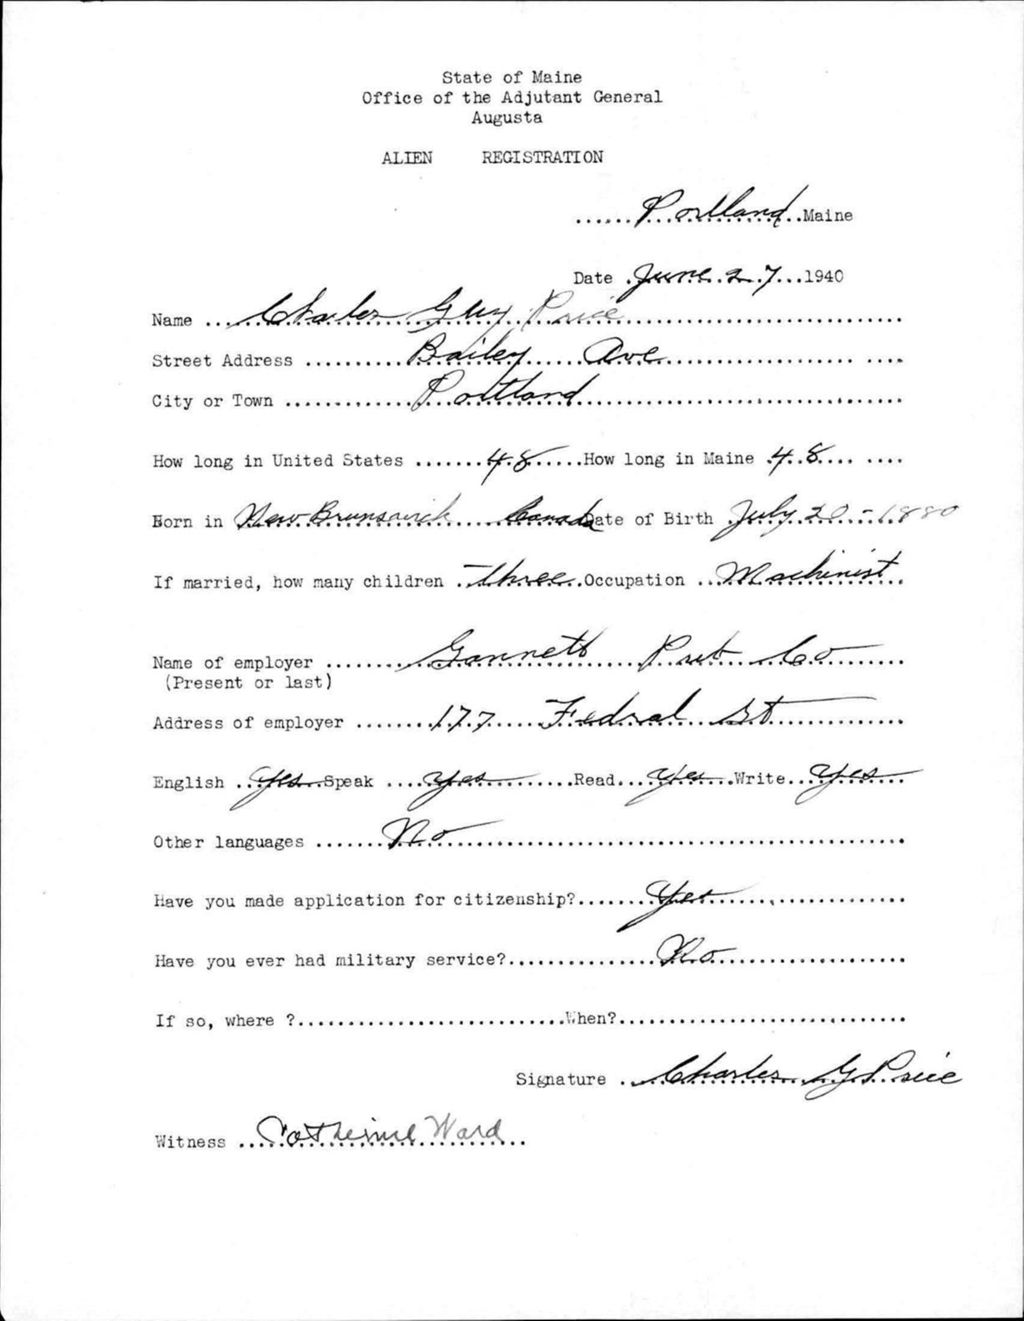 State of Maine
Office of the Adjutant General
Augusta
ALIEN REGISTRATION
......Portland..Maine
Date .June 27...1940
Name ...Charles Guy Price.............................
Street Address ..........Bailey Ave......................
City or Town .............Portland...............................
How long in United States .......48......How long in Maine .48.... ....
Born in New Brunswick Canada Date of Birth July 20-1880
If married, how many children .Three.Occupation ..Machinist..
Name of employer .......Gannett Pub Co......
(Present or last)
Address of employer .......177 Fedral St.............
English ..Yes..Speak ....Yes.........Read...Yes...Write...Yes...
Other languages .......No..............................................
Have you made application for citizenship?.......Yes...................
Have you ever had military service?...............No...................
If so, where ?...........................When?.............................
Signature ..Charles G Price
Witness ....Catherine Ward...